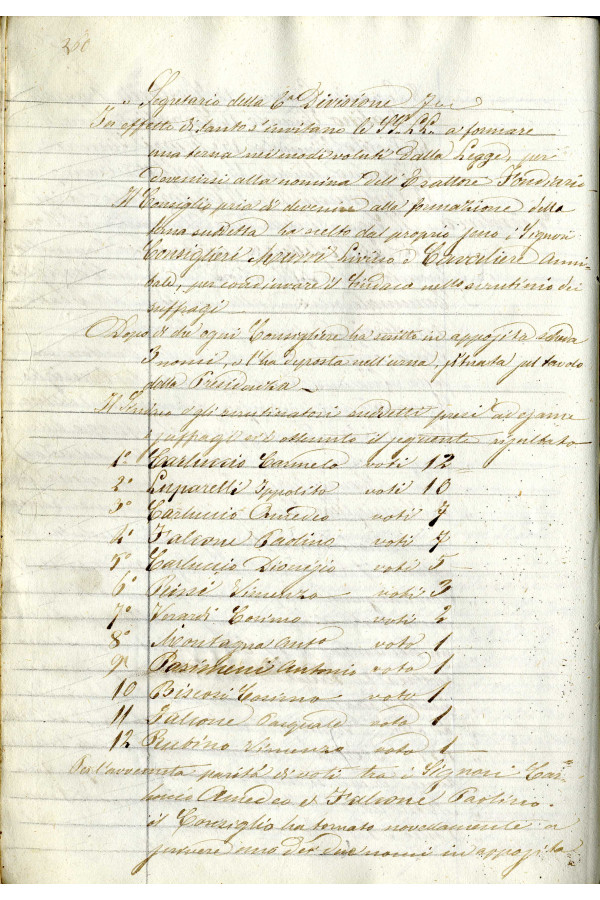 260
Segretario della 6a Divisione
Per effetto di tanto s'invitano le SS. LL. a formare
una terna nei modi voluti dalla Legge, per
devenirsi alla nomina dell'Esattore Fondiario
Il Consiglio pria di devenire alla formazione della
terna suddetta ha scelto dal proprio seno i Signori
Consiglieri Livino e Cavaliere Anni
bale, per coadiuvare il Sindaco nello scrutinio dei
suffragi
Dopo di che ogni Consigliere ha scritto in apposita scheda
3 nomi, e l'ha deposta nell'urna, situata sul tavolo
della Presidenza
Il Sindaco e gli scrutinatori suddetti presi ad esame
i suffragi si è ottenuto il seguente risultato
1º Carluccio Carmelo voti 12
2º Lupparelli Ippolito voti 10
3º Carluccio Amedeo voti 7
4º Falcone Paolino voti 7
5º Carluccio Dionigio voti 5
6º Vincenzo voti 3
7º Cosimo voti 2
8º Montagna Anto voto 1
9º Antonio voto 1
10 Cosimo voto 1
11 Falcone Pasquale voto 1
12 Rubino Vincenzo voto 1
Per l'avvenuta parità di voti tra i Signori Car
luccio Amedeo e Falcone Paolino
il Consiglio ha tornato novellamente a
scrivere uno dei due nomi in apposita